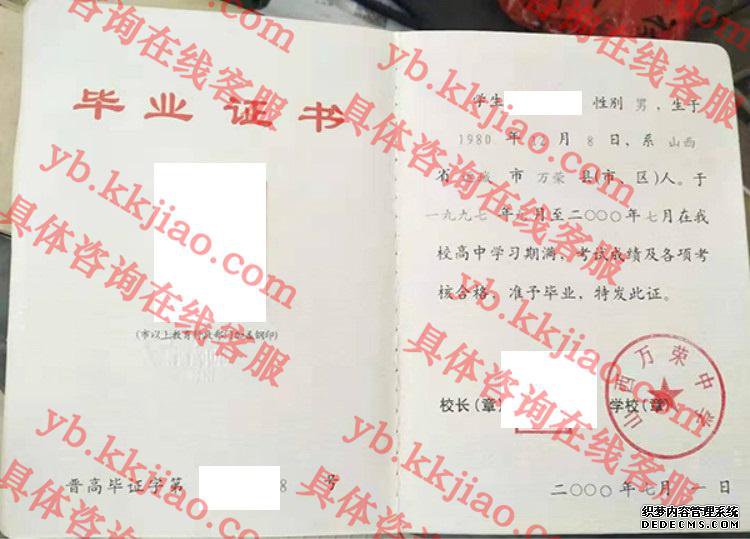 毕业证书
(市以上教育行政部门加盖钢印)
晋高毕证字第 8 号
学生 性别 男，生于
1980 年 12 月 8 日，系 山西
省 运城 市 万荣 县(市、区)人。于
一九九七 年 九 月至二〇〇〇年 七 月在我
校高中学习期满，考试成绩及各项考
核合格，准予毕业，特发此证。
校长(章) 学校(章)
山西万荣中学
二〇〇〇 年 七 月 一 日
具体咨询在线客服
yb.kkjiao.com
具体咨询在线客服
yb.kkjiao.com
具体咨询在线客服
yb.kkjiao.com
具体咨询在线客服
yb.kkjiao.com
具体咨询在线客服
yb.kkjiao.com
具体咨询在线客服
yb.kkjiao.com
具体咨询在线客服
织梦内容管理系统
DEDECMS.COM